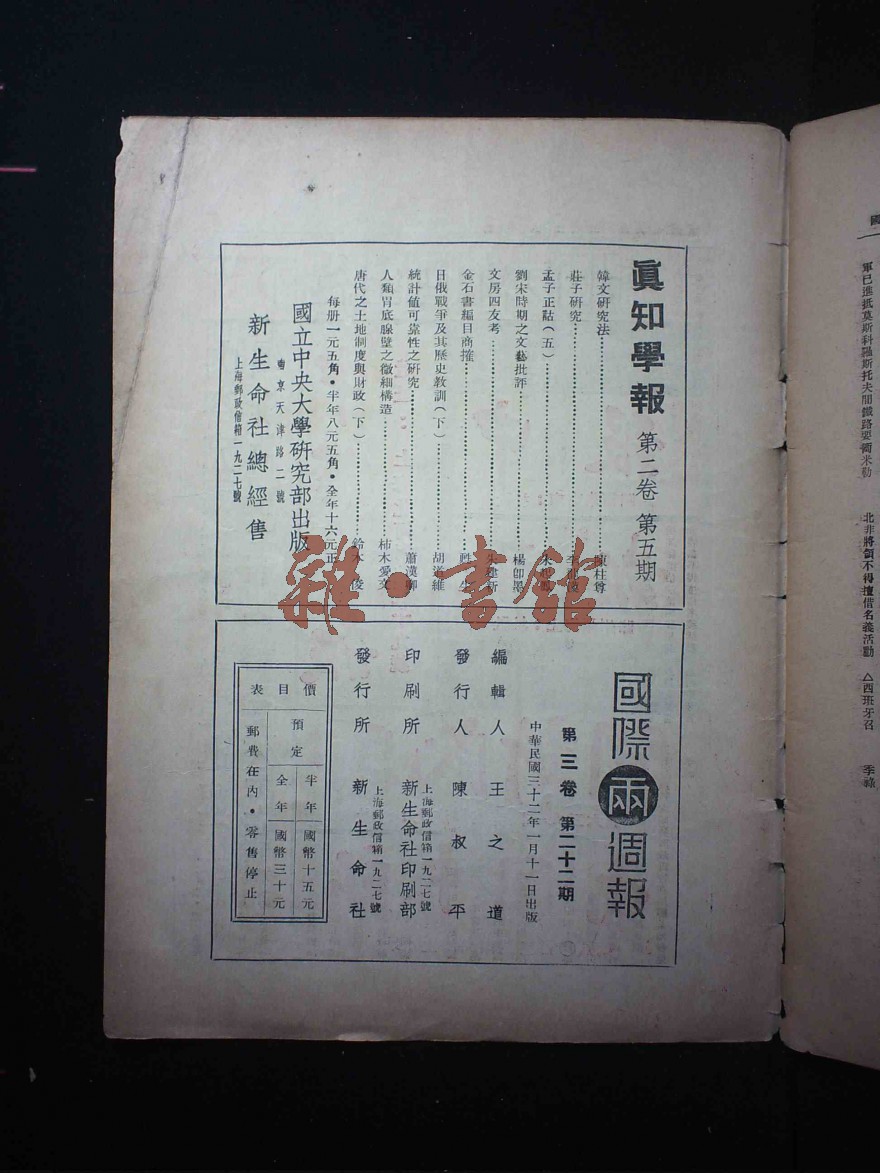 眞知學報 第二卷 第五期
韓文研究法……陳柱尊
莊子研究……
孟子正詁（五）……
劉宋時期之文藝批評……楊卽墨
文房四友考……
金石書編目商搉……
日俄戰爭及其歷史教訓（下）……胡道維
統計値可靠性之研究……蕭漢卿
人類胃底腺壁之微細構造……柿木愛文
唐代之土地制度與財政（下）……鈴木 俊
每册一元五角・半年八元五角・全年十六元正
國立中央大學研究部出版
南京天津路二號
新生命社總經售
上海郵政信箱一九二七號
雜・書館
國際兩週報
第三卷 第二十二期
中華民國三十二年一月十一日出版
編輯人 王之道
發行人 陳叔平
上海郵政信箱一九二七號
印刷所 新生命社印刷部
上海郵政信箱一九二七號
發行所 新生命社
價目表
預定
半年 國幣十五元
全年 國幣三十元
郵費在內・零售停止
國
軍已進抵莫斯科羅斯托夫間鐵路要衝米勒
北非將領不得擅借名義活動 △西班牙召
季祿